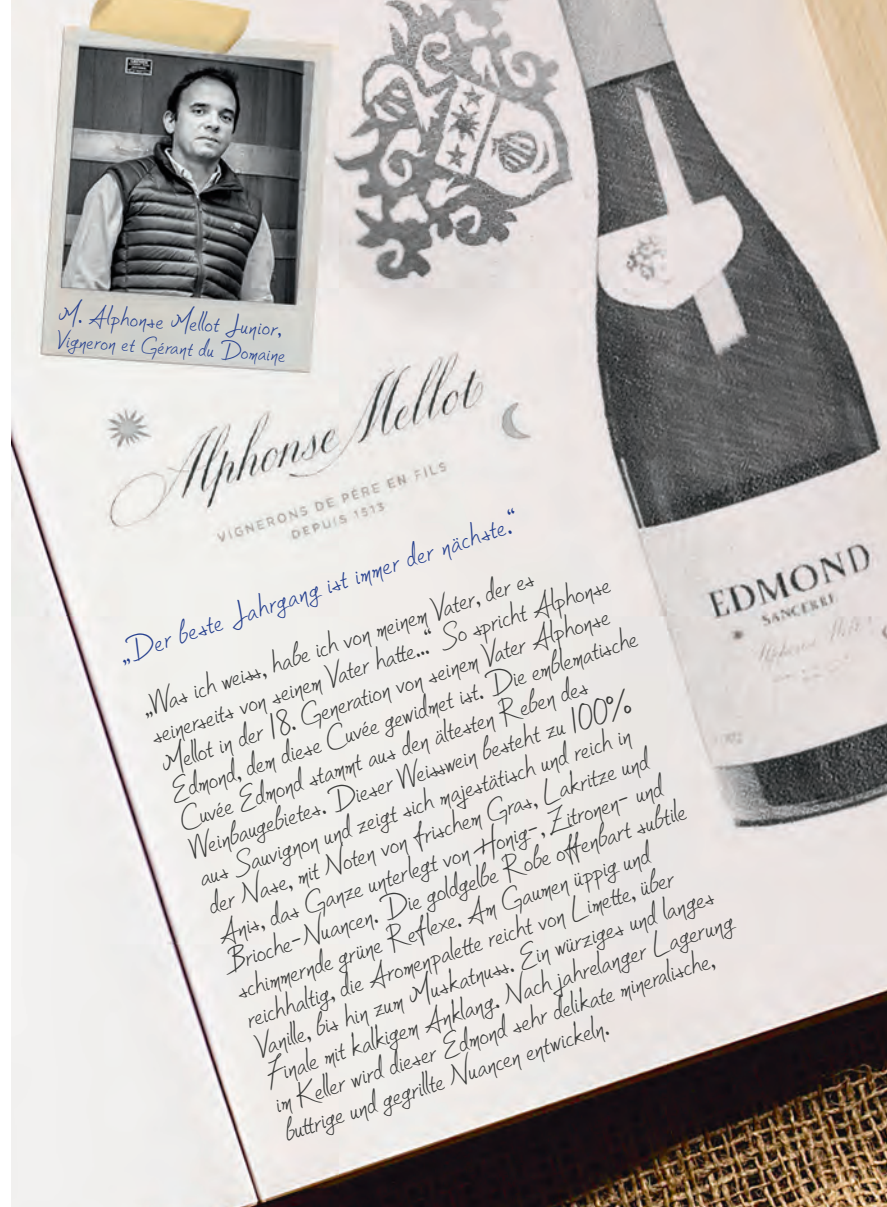 M. Alphonse Mellot Junior,
Vigneron et Gérant du Domaine
Alphonse Mellot
VIGNERONS DE PÈRE EN FILS
DEPUIS 1513
„Der beste Jahrgang ist immer der nächste.“
„Was ich weiss, habe ich von meinem Vater, der es
seinerseits von seinem Vater hatte...“ So spricht Alphonse
Mellot in der 18. Generation von seinem Vater Alphonse
Edmond, dem diese Cuvée gewidmet ist. Die emblematische
Cuvée Edmond stammt aus den ältesten Reben des
Weinbaugebietes. Dieser Weisswein besteht zu 100%
aus Sauvignon und zeigt sich majestätisch und reich in
der Nase, mit Noten von frischem Gras, Lakritze und
Anis, das Ganze unterlegt von Honig-, Zitronen- und
Brioche-Nuancen. Die goldgelbe Robe offenbart subtile
schimmernde grüne Reflexe. Am Gaumen üppig und
reichhaltig, die Aromenpalette reicht von Limette, über
Vanille, bis hin zum Muskatnuss. Ein würziges und langes
Finale mit kalkigem Anklang. Nach jahrelanger Lagerung
im Keller wird dieser Edmond sehr delikate mineralische,
buttrige und gegrillte Nuancen entwickeln.
EDMOND
SANCERRE
Alphonse Mellot